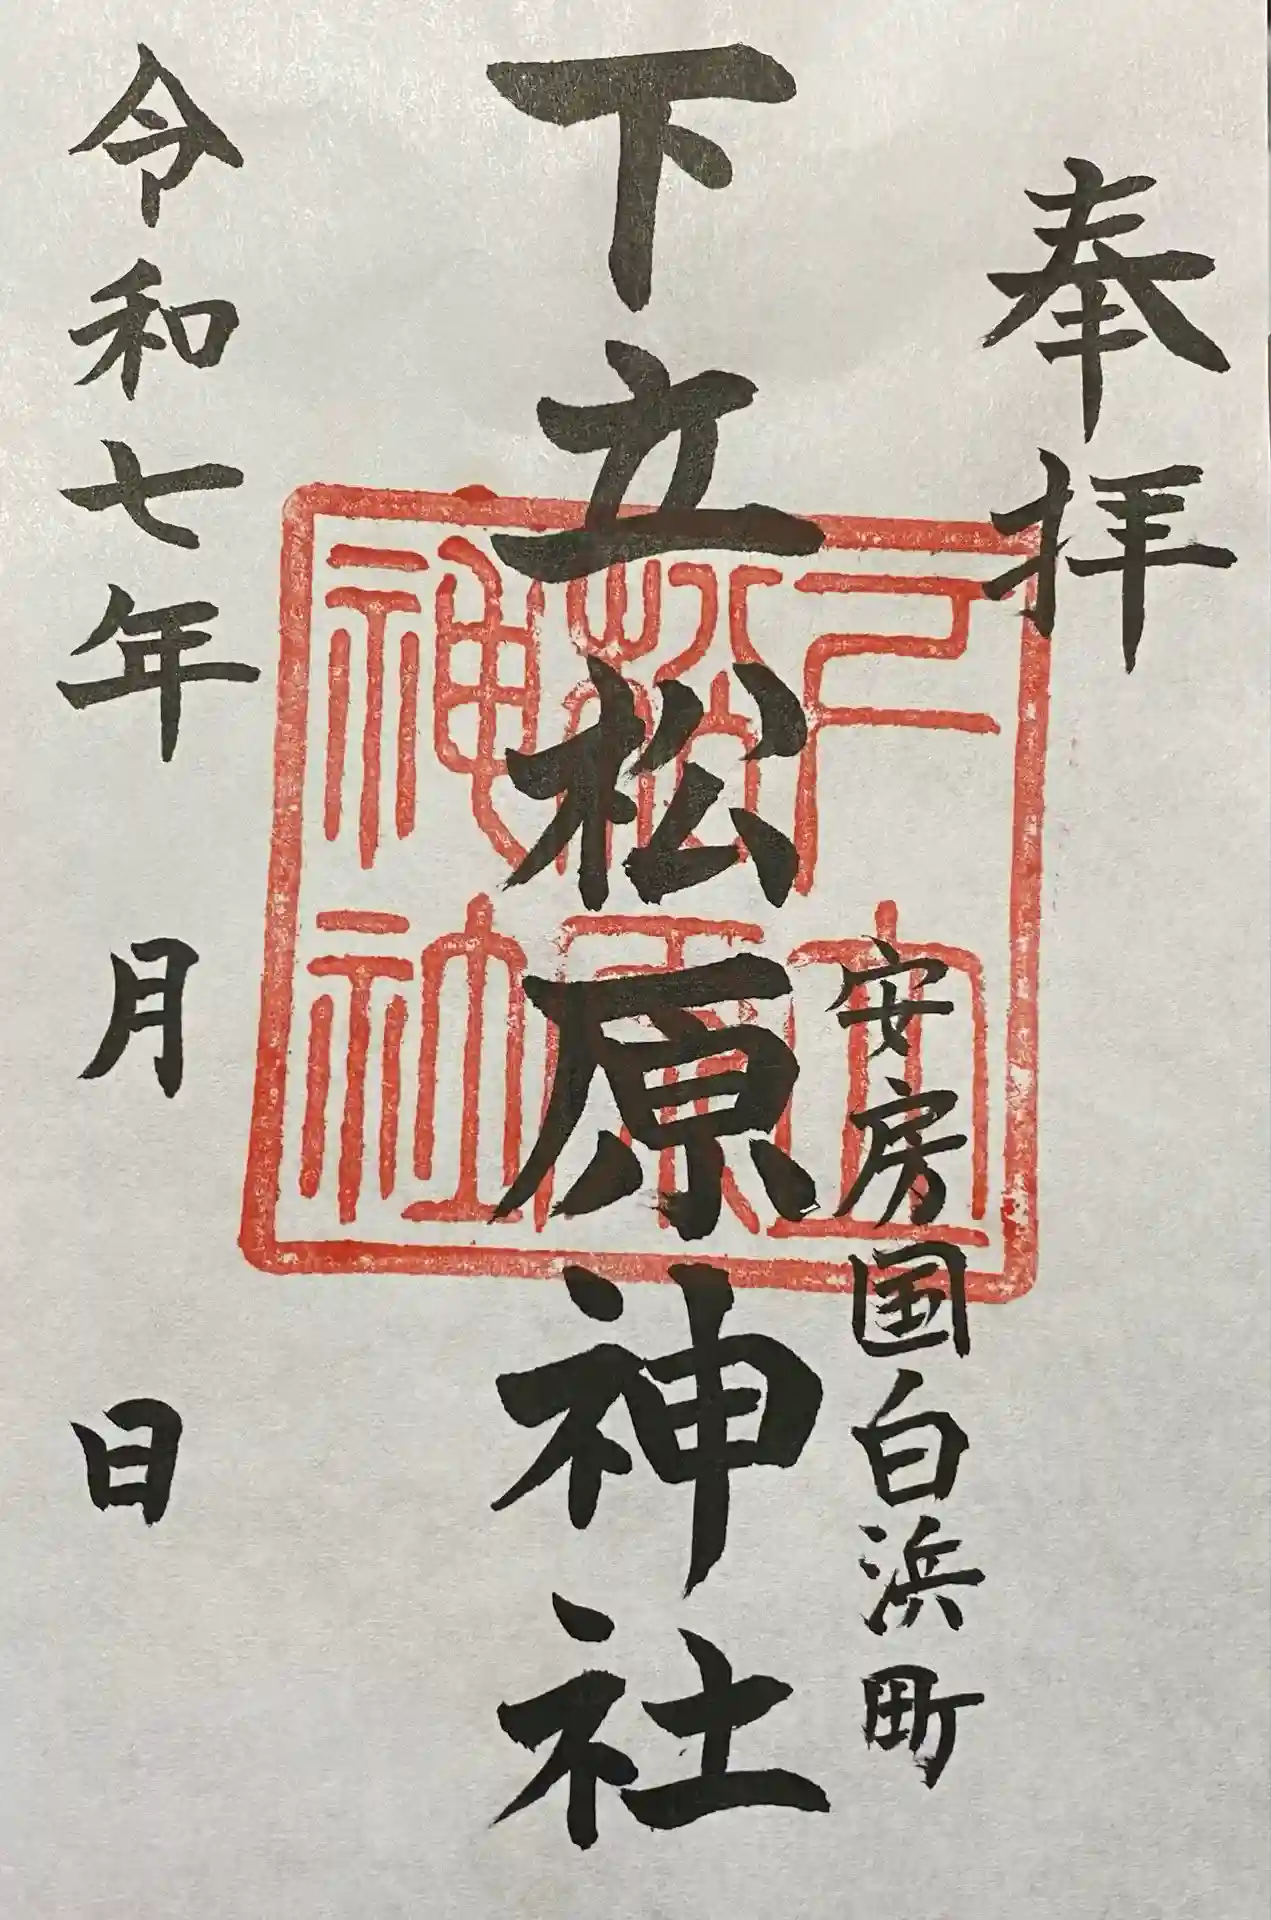 奉拝
安房国白浜町
下立松原神社
令和七年 月 日
戸立
松原
神社